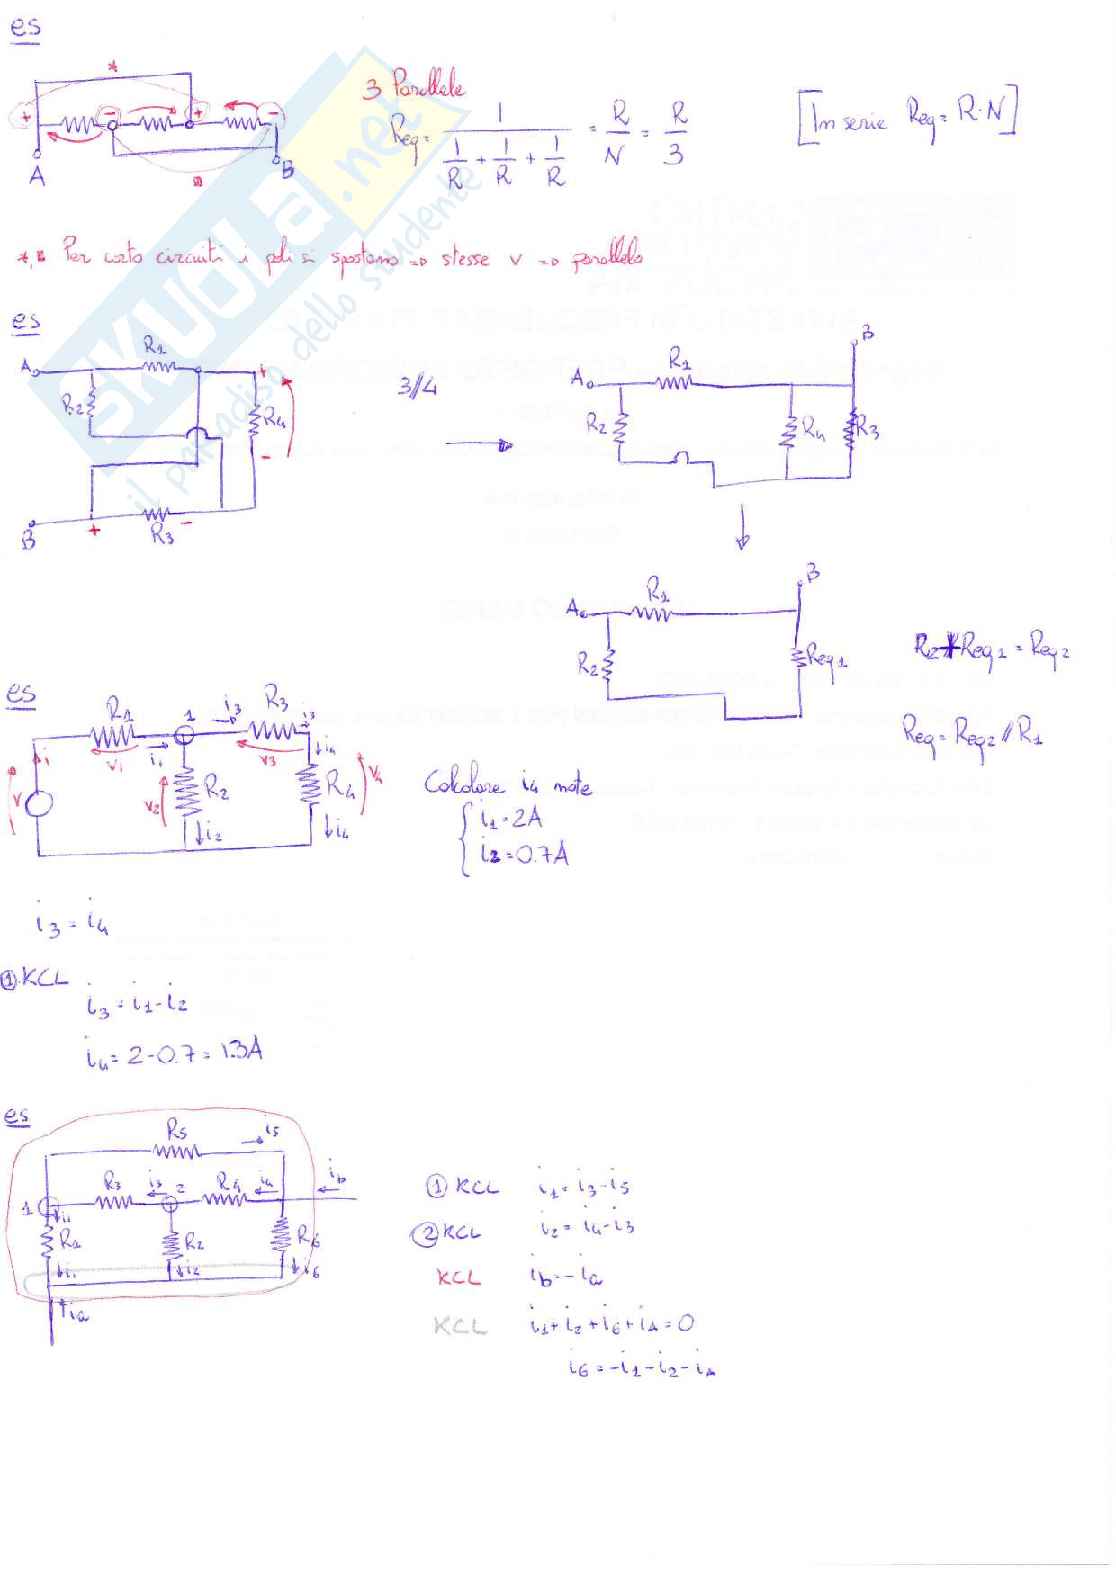 es
*
+ - + -
A B
3 Parallele
Req = 1 / (1/R + 1/R + 1/R) = R/N = R/3
[In serie Req = R·N]
SKUOLA.net
il paradiso dello studente
Per corto circuiti i poli si spostano => stesse v => parallelo
es
A R1 +
R2 R4
-
B + R3 -
3//4
A R1 B
R2 R4 R3
A R1 B
R2 Req1
R2 + Req1 = Req2
Req = Req2 // R1
es
R1 1 i3 R3 i3
i v1 i1 v3 i4
v v2 R2 R4 v4
i2 i4
Calcolare i4 note
{ i1 = 2A
i2 = 0.7A
i3 = i4
① KCL
i3 = i1 - i2
i4 = 2 - 0.7 = 1.3A
es
R5 i5
R3 i3 2 R4 i4 ib
1 i1
R1 R2 R6
i1 i2 i6
ia
① KCL i1 = i3 - i5
② KCL i2 = i4 - i3
KCL ib = -ia
KCL i1 + i2 + i6 + iA = 0
i6 = -i1 - i2 - iA